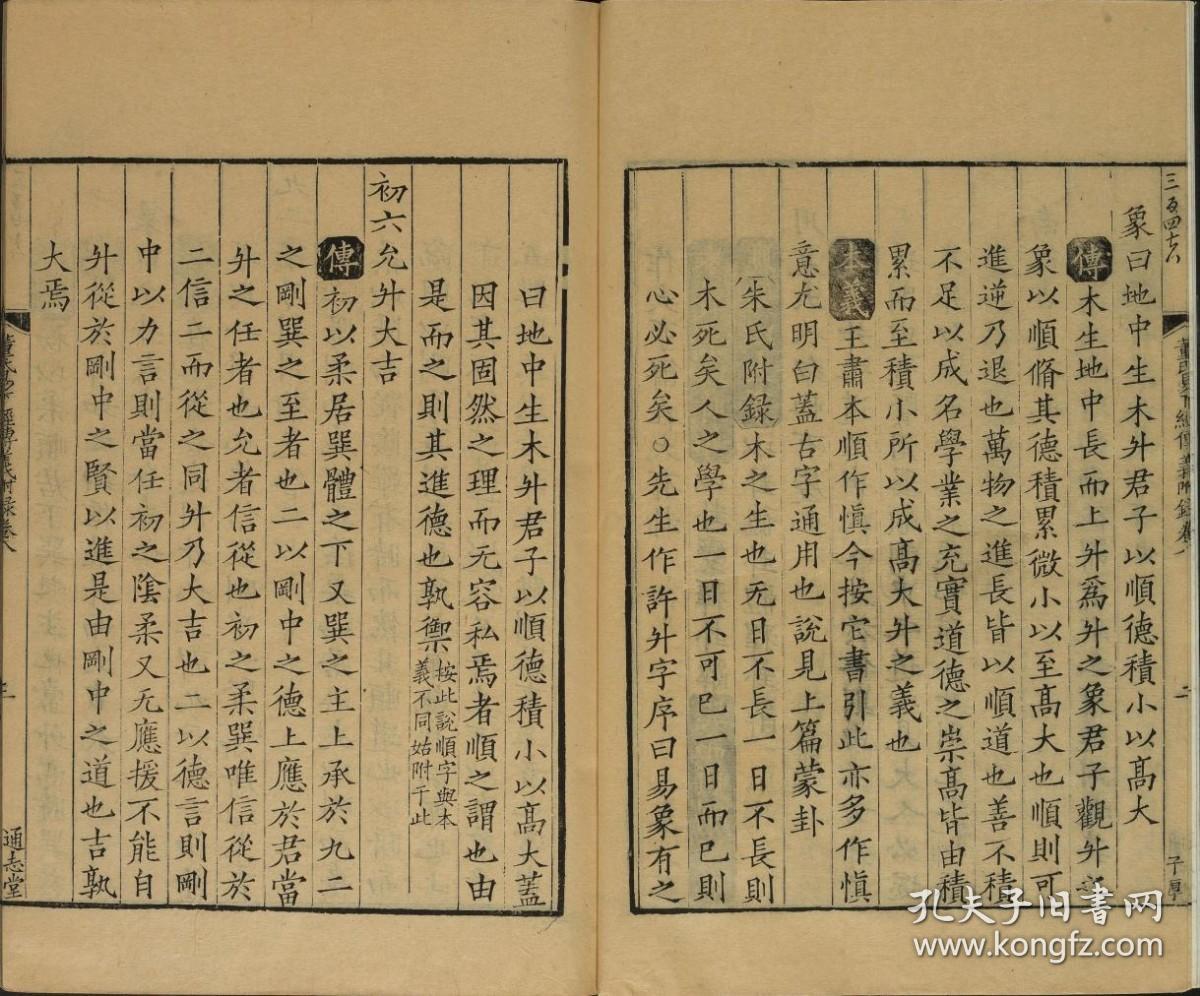 三百四十六
象曰地中生木升君子以順德積小以高大
傳木生地中長而上升爲升之象君子觀升之
象以順脩其德積累微小以至高大也順則可
進逆乃退也萬物之進長皆以順道也善不積
不足以成名學業之充實道德之崇高皆由積
累而至積小所以成高大升之義也
本義王肅本順作慎今按它書引此亦多作慎
意尤明白蓋古字通用也說見上篇蒙卦
朱氏附録木之生也无日不長一日不長則
木死矣人之學也一日不可已一日而已則
心必死矣○先生作許升字序曰易象有之
子厚
曰地中生木升君子以順德積小以高大蓋
因其固然之理而无容私焉者順之謂也由
是而之則其進德也孰禦按此說順字與本
義不同姑附于此
初六允升大吉
傳初以柔居巽體之下又巽之主上承於九二
之剛巽之至者也二以剛中之德上應於君當
升之任者也允者信從也初之柔巽唯信從於
二信二而從之同升乃大吉也二以德言則剛
中以力言則當任初之陰柔又无應援不能自
升從於剛中之賢以進是由剛中之道也吉孰
大焉
通志堂
孔夫子旧书网
www.kongfz.com